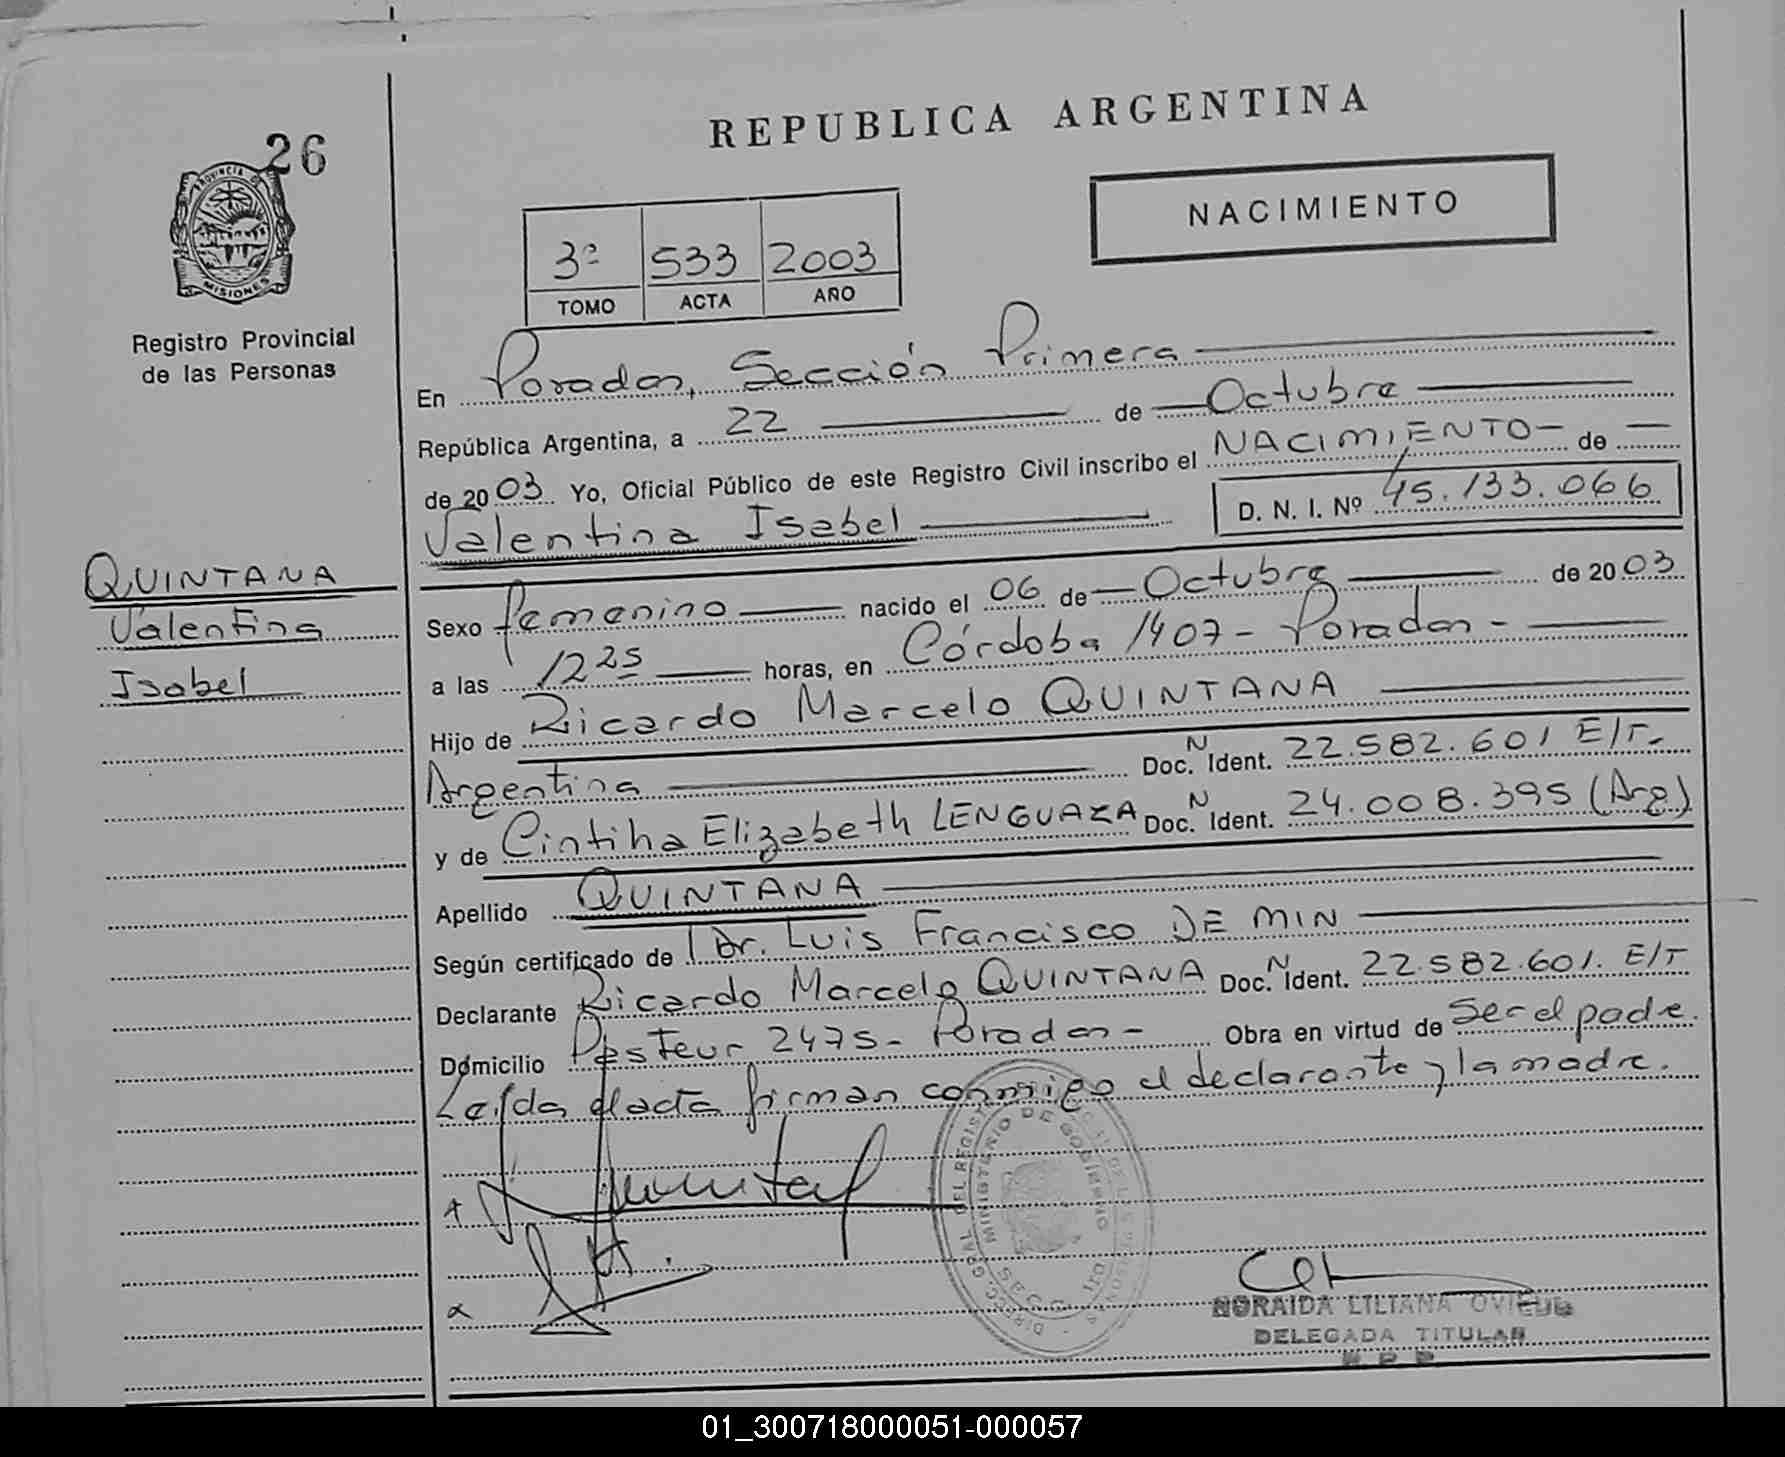 REPUBLICA ARGENTINA
26
PROVINCIA DE
MISIONES
Registro Provincial
de las Personas
NACIMIENTO
3º 533 2003
TOMO ACTA AÑO
En Posadas, Sección Primera
República Argentina, a 22 de Octubre
de 2003 Yo, Oficial Público de este Registro Civil inscribo el NACIMIENTO de
Valentina Isabel
D. N. I. Nº 45.133.066
QUINTANA
Valentina
Isabel
Sexo femenino nacido el 06 de Octubre de 2003
a las 12 25 horas, en Córdoba 1407 - Posadas -
Hijo de Ricardo Marcelo QUINTANA
Argentina Doc. N Ident. 22.582.601 E/T.
y de Cintiha Elizabeth LENGUAZA Doc. N Ident. 24.008.395 (Arg)
Apellido QUINTANA
Según certificado de Dr. Luis Francisco DE MIN
Declarante Ricardo Marcelo QUINTANA Doc. N Ident. 22.582.601. E/T
Domicilio Pasteur 2475 - Posadas - Obra en virtud de ser el padre.
Leída el acta firman conmigo el declarante y la madre.
MINISTERIO DE GOBIERNO
NORAIDA LILIANA OVIEDO
DELEGADA TITULAR
01_300718000051-000057